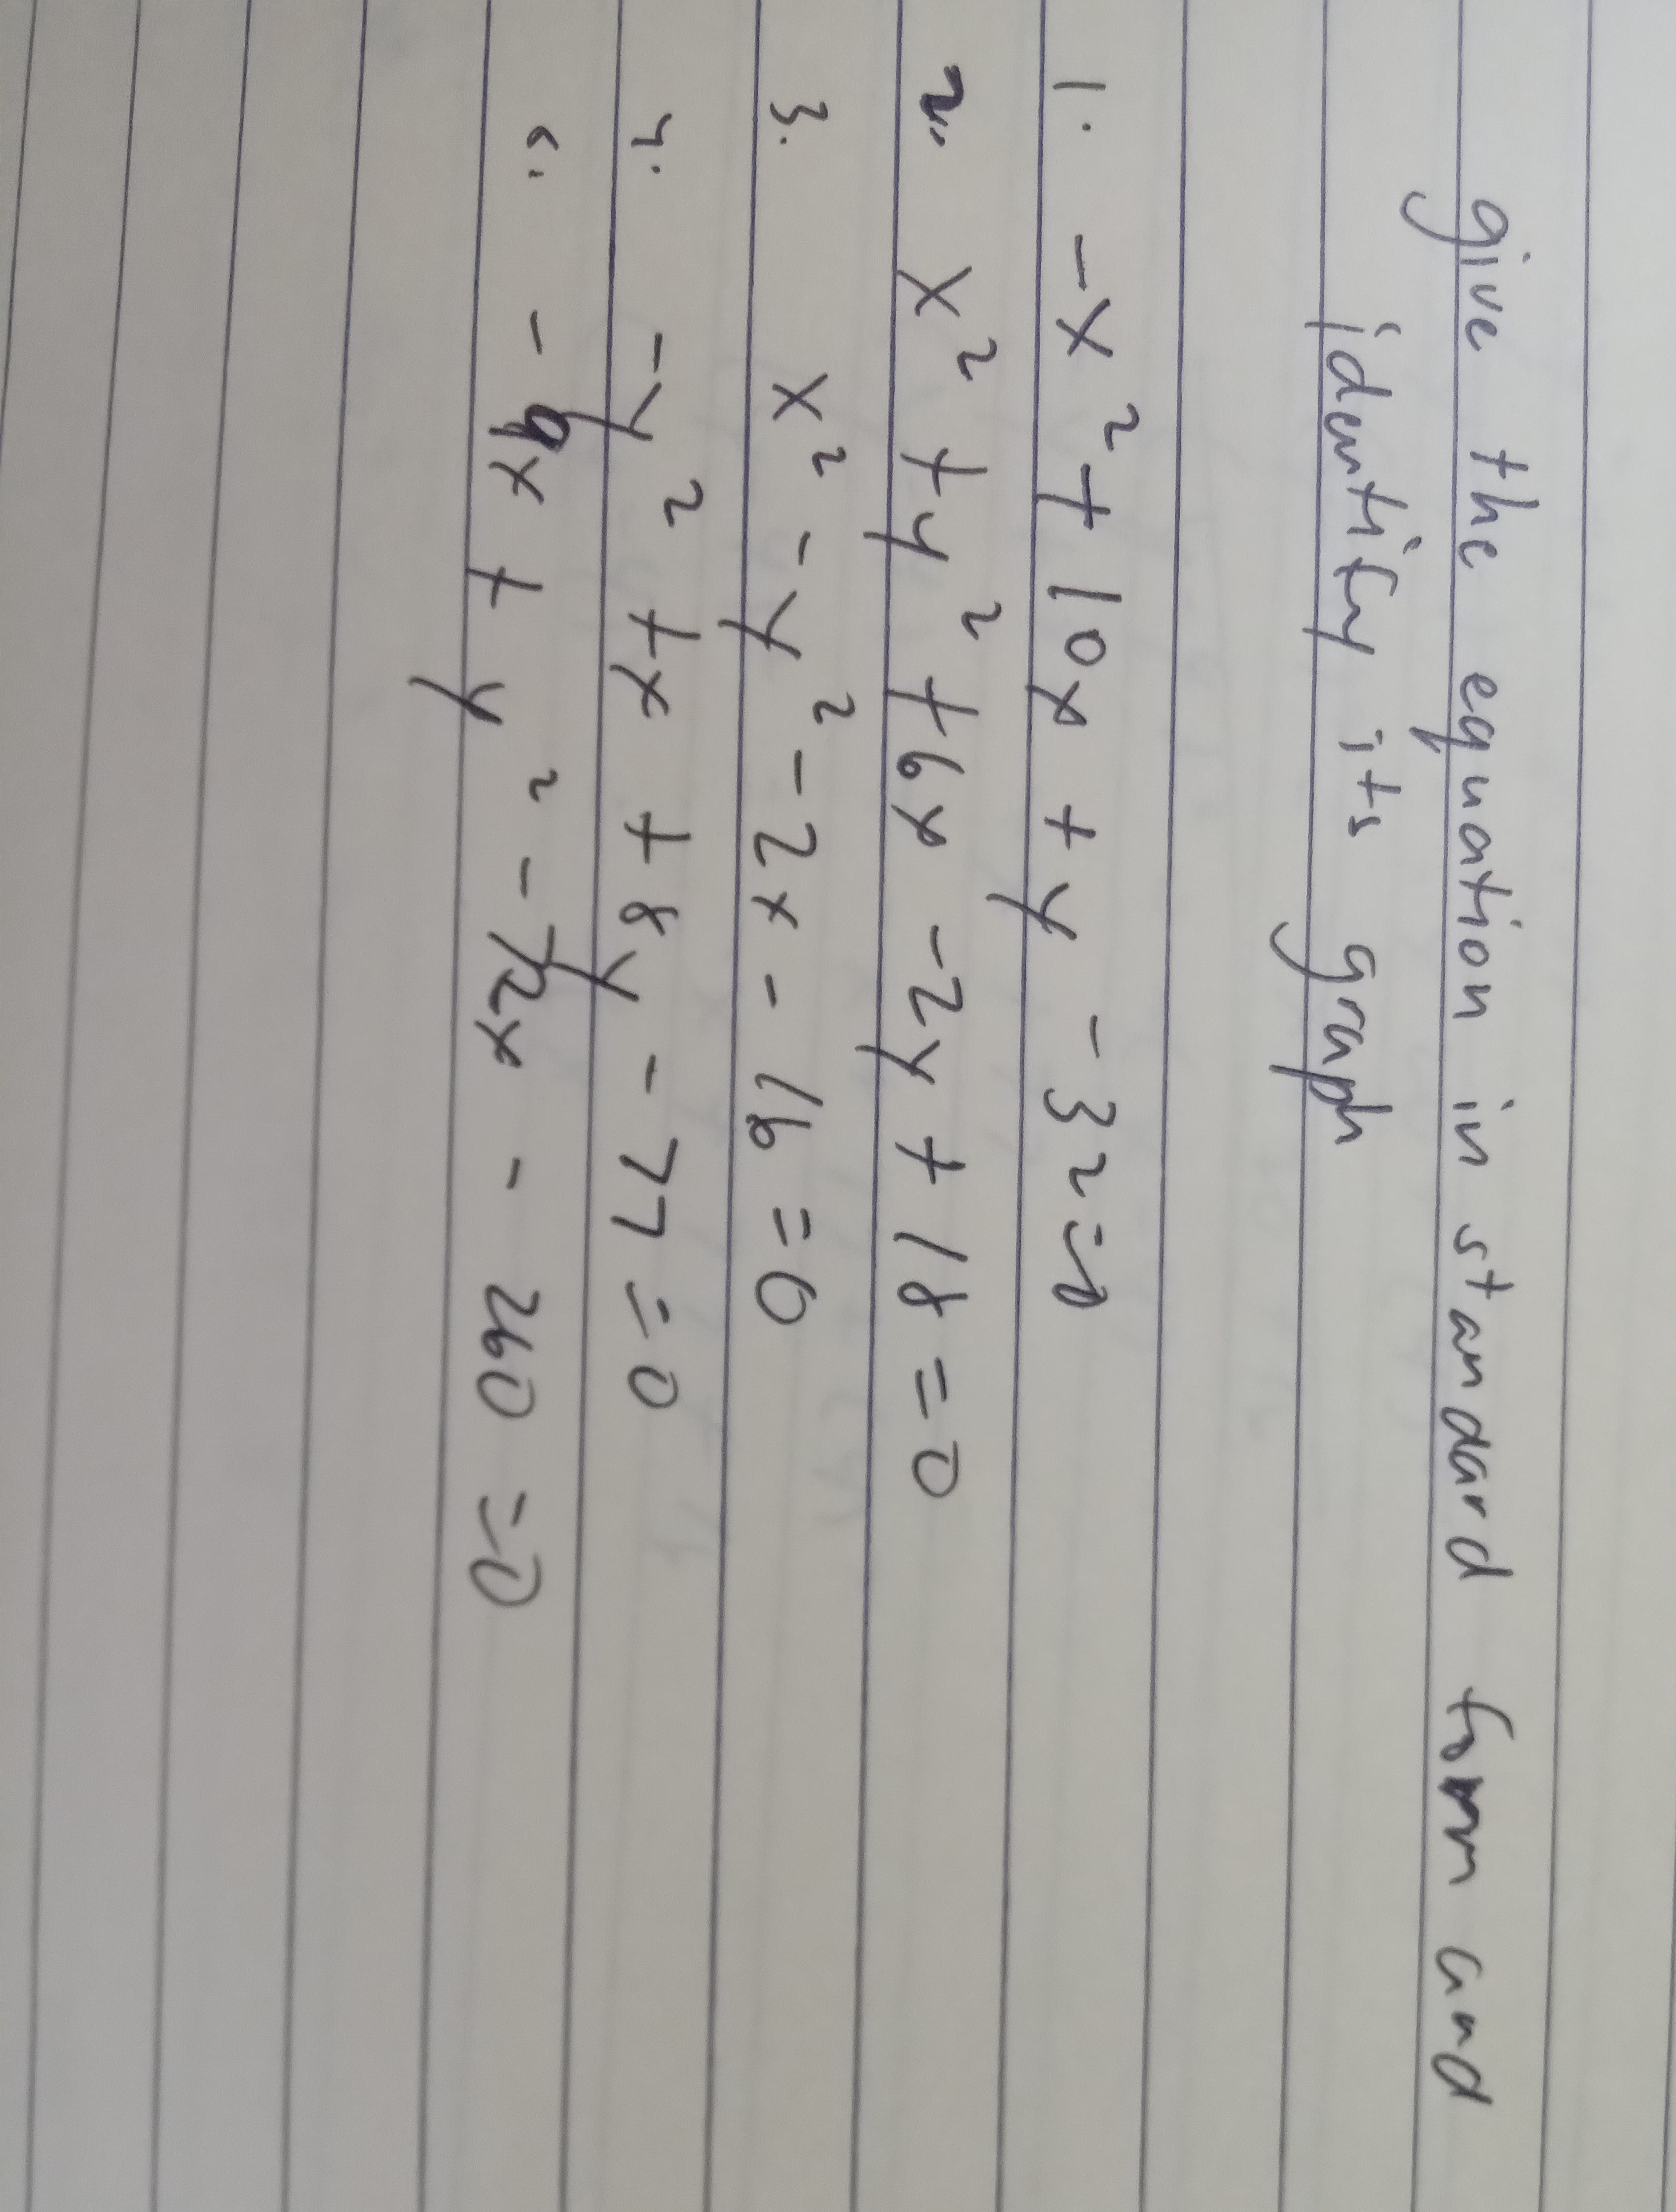 give the equation in standard form and
identify its graph
1. -x² + 10x + y - 32=0
2. x² + y² + 6x - 2y + 18 = 0
3. x² - y² - 2x - 16 = 0
4. -y² + x + 8y - 77 = 0
5. - 9x + y² - 72x - 260 = 0